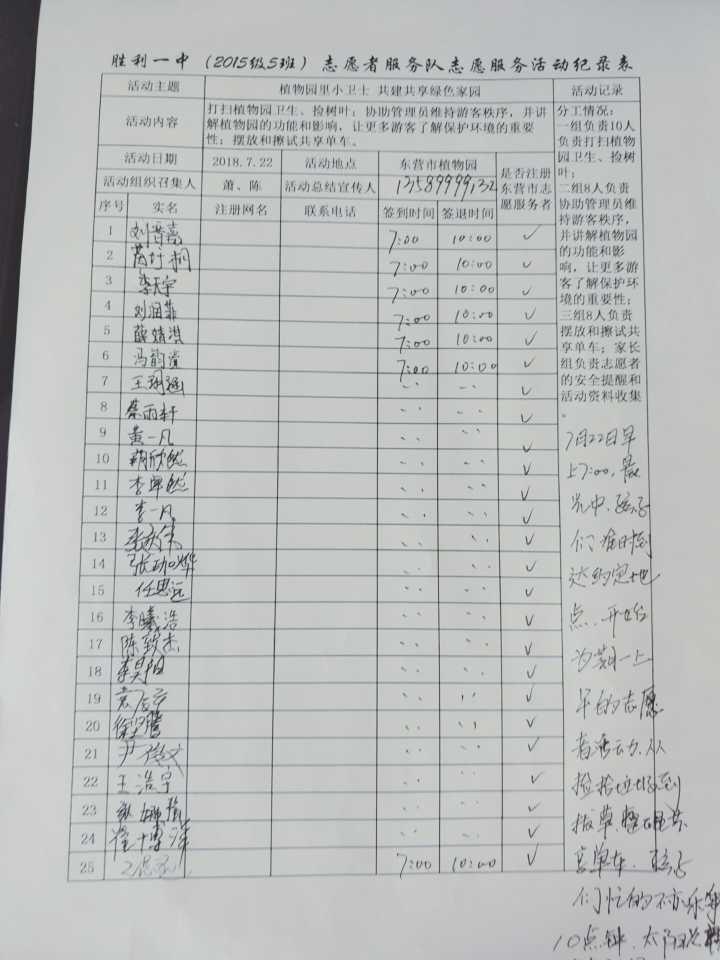 胜利一中（2015级5班）志愿者服务队志愿服务活动纪录表
活动主题 植物园里小卫士 共建共享绿色家园 活动记录
活动内容 打扫植物园卫生、捡树叶；协助管理员维持游客秩序，并讲
解植物园的功能和影响，让更多游客了解保护环境的重要
性；摆放和擦试共享单车。
活动日期 2018.7.22 活动地点 东营市植物园 是否注册
东营市志
愿服务者
活动组织召集人 萧、陈 活动总结宣传人 13589999132
序号 实名 注册网名 联系电话 签到时间 签退时间
1 刘晋嘉 7:00 10:00 ✓
2 7:00 10:00 ✓
3 李天宇 7:00 10:00 ✓
4 刘润菲 7:00 10:00 ✓
5 薛婧淇 7:00 10:00 ✓
6 冯韵滢 7:00 10:00 ✓
7 王翊涵 ✓
8 蔡雨轩 ✓
9 黄一凡 ✓
10 ✓
11 ✓
12 李一凡 ✓
13 ✓
14 ✓
15 任思远 ✓
16 李曦浩 ✓
17 陈致杰 ✓
18 李昊阳 ✓
19 ✓
20 ✓
21 ✓
22 王浩宇 ✓
23 ✓
24 ✓
25 7:00 10:00 ✓
分工情况：
一组负责10人
负责打扫植物
园卫生、捡树
叶；
二组8人负责
协助管理员维
持游客秩序，
并讲解植物园
的功能和影
响，让更多游
客了解保护环
境的重要性；
三组8人负责
摆放和擦试共
享单车；家长
组负责志愿者
的安全提醒和
活动资料收集
。
7月22日早
上7:00，晨
光中，孩子
们准时到
达约定地
点，开始
为期一上
午的志愿
者活动，从
捡拾垃圾到
拔草
享单车，孩子
们忙的不亦乐乎
10点钟，太阳